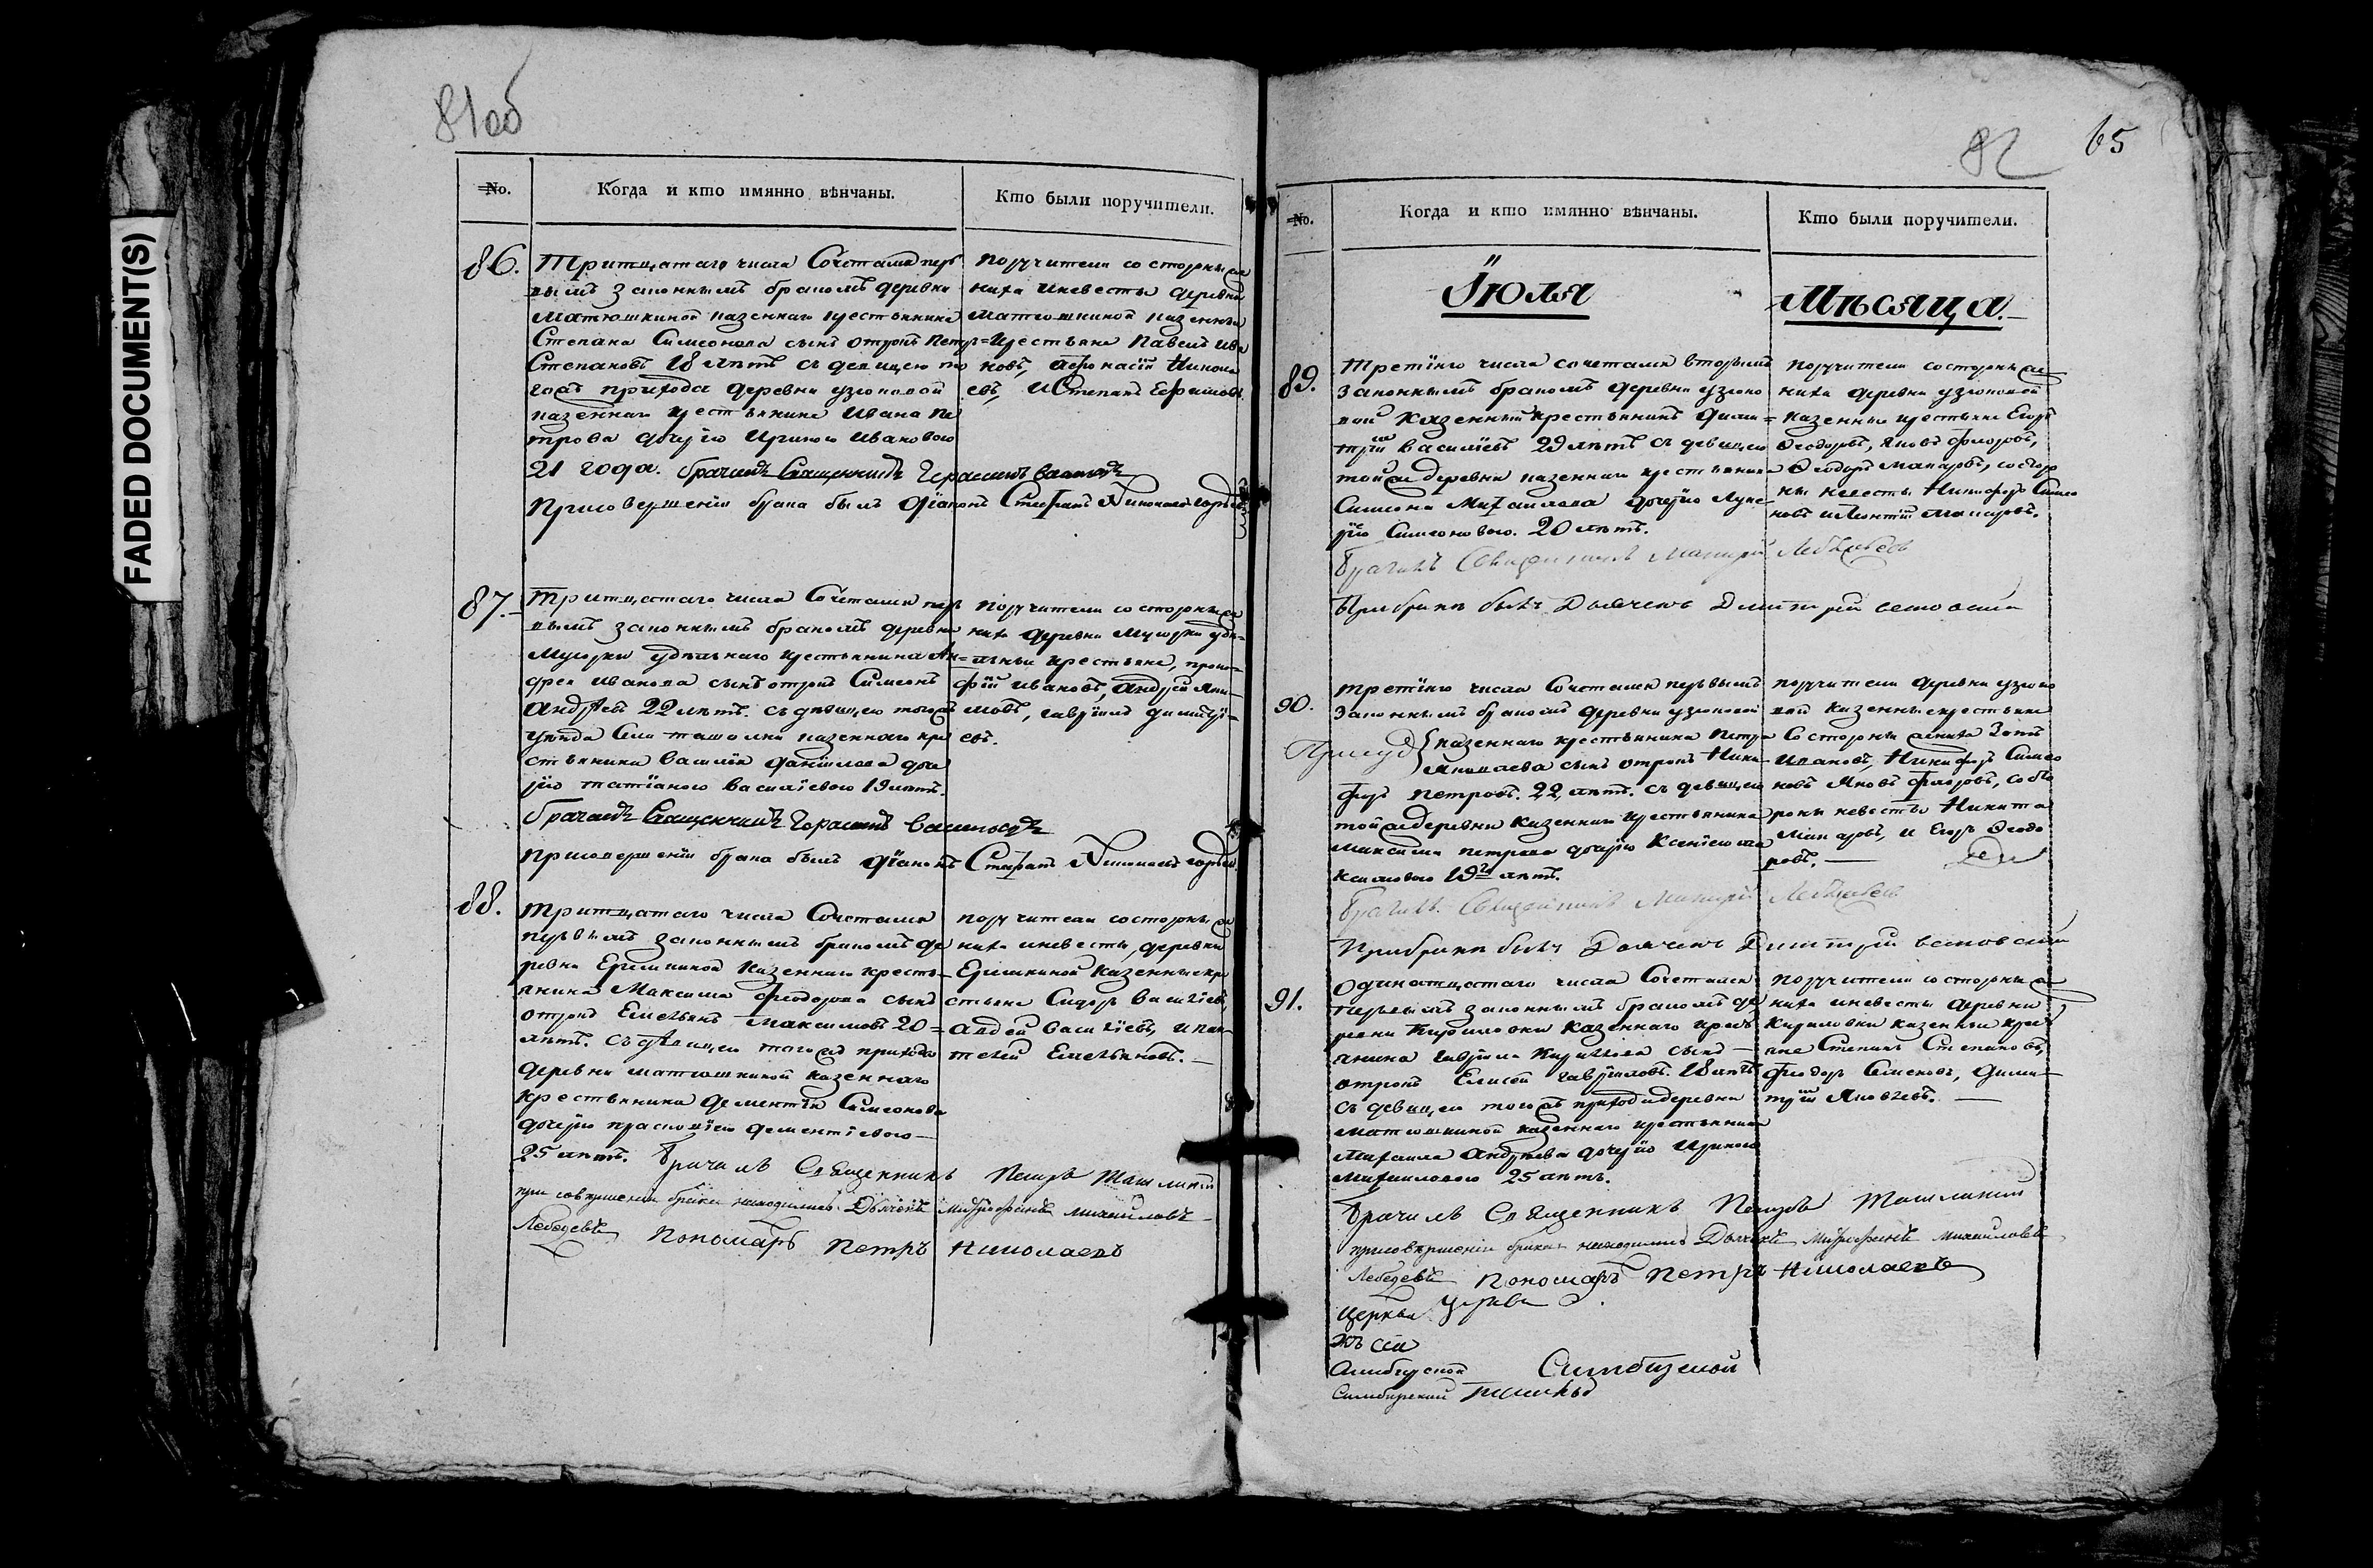 FADED DOCUMENT(S)
81об
№.
Когда и кто имянно вѣнчаны.
Кто были поручители.
86.
Тритцатаго числа Сочетался пер
вымъ законнымъ бракомъ деревни
Матюшкиной казеннаго крестьянина
Степана Симеонова сынъ отрокъ Петръ
Степановъ 18 лѣтъ съ девицею то
гожъ прихода деревни узюковой
казеннаго крестьянина Ивана Пе
трова дочерію Ириною Ивановою
21 года. брачилъ Священникъ Герасимъ Васильевъ
Присовершеніи брака былъ діаконъ Стефанъ Николаевъ
поручители состороны же
ниха иневесты деревни
матюшкиной казенныя
крестьяне Павелъ Ива
новъ, Афонасій Никола
евъ, иСтепанъ Ефимовъ.
87.
Тритцатаго числа Сочетался пер
вымъ законнымъ бракомъ деревни
Мусорки удѣльнаго крестьянина Ан=
дрея Иванова сынъ отрокъ Симеонъ
Андреевъ 22 лѣтъ. съ дѣвицею тогожъ
уѣзда Села ташолки казеннаго кре
стьянина Василія Даніилова доче
рію татіаною Васильевою 19 лѣтъ.
брачилъ Священникъ Герасимъ Васильевъ
присовершеніи брака былъ діаконъ Стефанъ Николаевъ
поручители состороны же
ниха деревни Мусорки удѣ=
льныя крестьяне, проко=
фій Ивановъ, Андрей Яки=
мовъ, гавріилъ димитрі=
евъ.
88.
тритцатаго числа Сочетался
первымъ законнымъ бракомъ де
ревни Еремкиной казеннаго кресть=
янина Максима феодорова сынъ
отрокъ Емельянъ Максимовъ 20=
лѣтъ. съ дѣвицею тогожъ прихода
деревни матюшкиной казеннаго
крестьянина дементія Симеонова
дочерію прасковіею дементіевою
25 лѣтъ. Брачилъ Священникъ Петръ Ташлинскій
при совершеніи брака находились Дьячекъ Митрофанъ Михайловъ
Лебедевъ Пономарь Петръ Николаевъ
поручители состороны же
ниха иневесты, деревни
Еремкиной казенные кре
стьяне Сидоръ Васильевъ,
Авдей Васильевъ, ипан=
телей Емельяновъ.
82
65
№.
Когда и кто имянно вѣнчаны.
Кто были поручители.
Іюля
Мѣсяца.
89.
третіяго числа сочетался вторымъ
законнымъ бракомъ деревни узюко
вой казенный крестьянинъ дими=
трій Василіевъ 29 лѣтъ съ девицею
тойже деревни казеннаго крестьянина
Симеона Михаилова дочерію Луке
рію Симеоновою. 20 лѣтъ.
Брачилъ Священникъ Лебедевъ
При бракѣ былъ Дьячекъ Димитрій
поручители состороны же
ниха деревни узюковой
казенныя крестьяне Егоръ
Феодоровъ, Яковъ Флоровъ,
Феодоръ Макаровъ, состор
ны невесты Никифоръ Симео
новъ иЛеонтій Макаровъ.
90.
третіяго числа Сочетался первымъ
законнымъ бракомъ деревни узюковой
казеннаго крестьянина Петра
сынъ отрокъ Ники
форъ Петровъ. 22, лѣтъ. съ девицею
тойжедеревни казеннаго крестьянина
Максима петрова дочерію Ксеніею ма
ксимовою 19 лѣтъ.
Брачилъ Священникъ Лебедевъ
При бракѣ былъ Дьячекъ Димитрій
поручители деревни узюко
вой казенные крестьяне
Состороны жениха
Ивановъ, Никифоръ Симео
новъ Яковъ Флоровъ, состо
роны невесты Никита
Макаровъ, и Егоръ Феодо
ровъ.
91.
одинатцатаго числа Сочетался
первымъ законнымъ бракомъ де
ревни Кириловки казеннаго кресть
янина гавріила Кирилова сынъ
отрокъ Елисей гавріиловъ. 18 лѣтъ
съ девицею тогожъ прихода деревни
матюшкиной казеннаго крестьянина
Михаила Андреева дочерію Ириною
Михаиловою 25 лѣтъ.
Брачилъ Священникъ Петръ Ташлинскій
присовершеніи брака находились Дьячекъ Митрофанъ Михайловъ
Лебедевъ Пономарь Петръ Николаевъ
поручители состороны же
ниха иневесты деревни
Кириловки казенныя крест
яне Степанъ Степановъ,
феодоръ Семеновъ, дими=
трій Яковлевъ.
Церкви
Симбирской
Симбирской